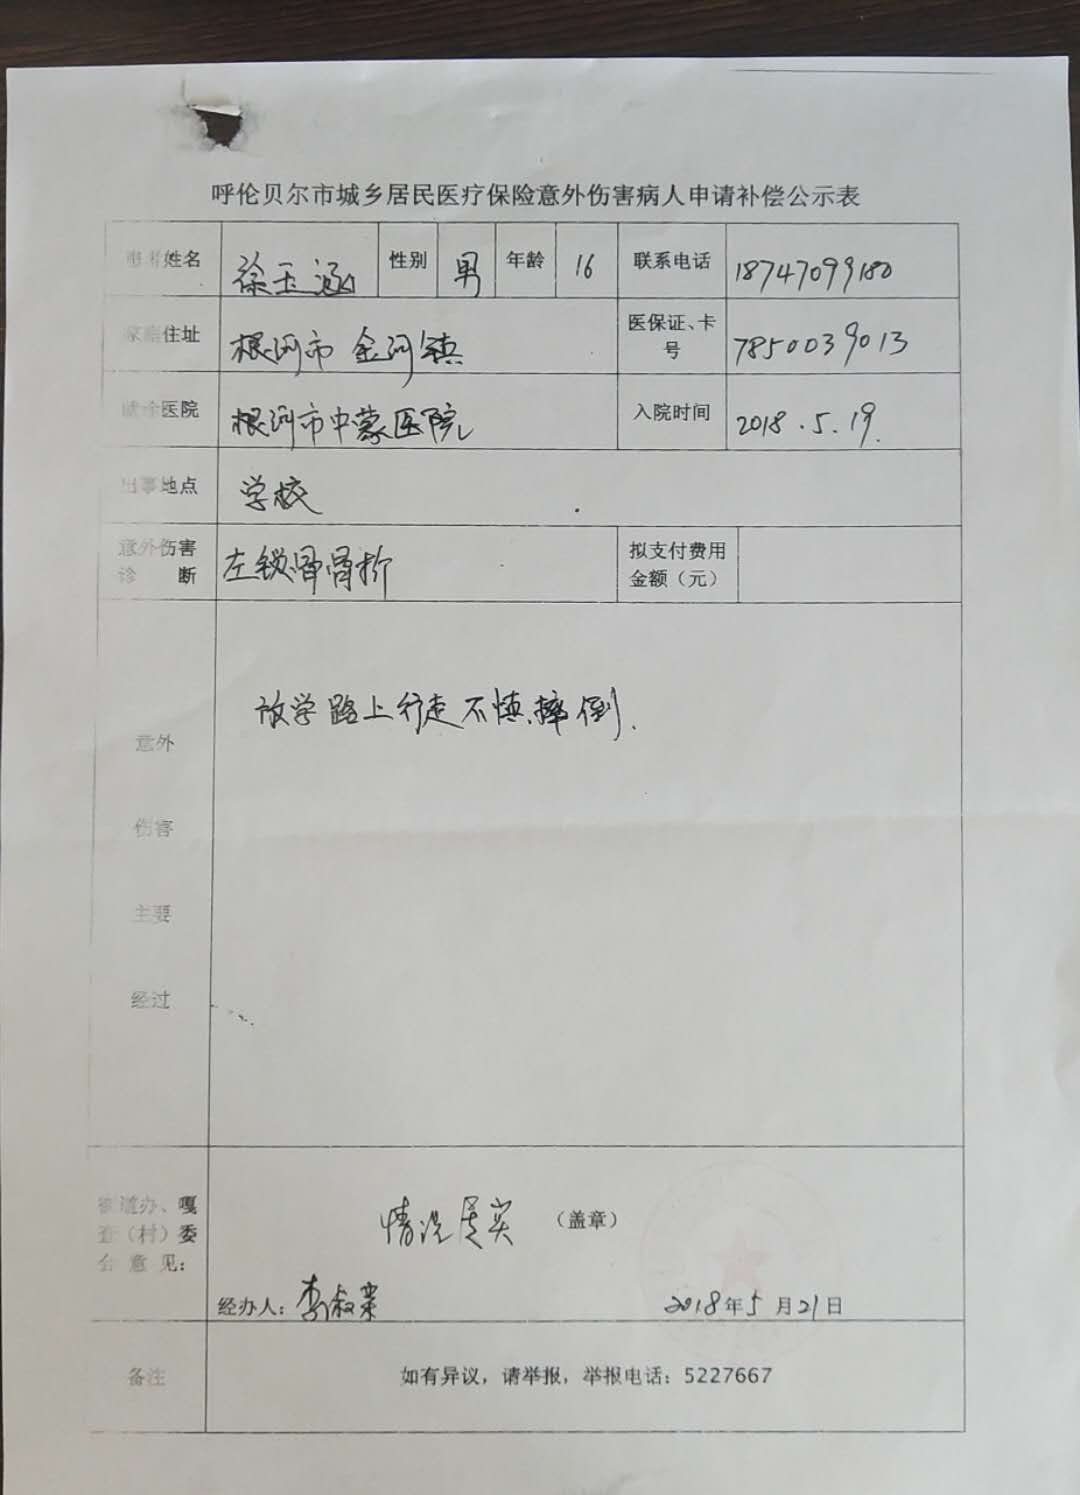 呼伦贝尔市城乡居民医疗保险意外伤害病人申请补偿公示表
患者姓名 徐玉涵 性别 男 年龄 16 联系电话 18747099180
家庭住址 根河市 金河镇 医保证、卡号 7850039013
就诊医院 根河市中蒙医院 入院时间 2018.5.19.
出事地点 学校
意外伤害诊断 左锁骨骨折 拟支付费用金额（元）
意外
伤害
主要
经过
放学路上行走不慎摔倒.
街道办、嘎
查（村）委
会意见：
情况属实 （盖章）
经办人：李叙荣 2018年5月21日
备注 如有异议，请举报，举报电话：5227667